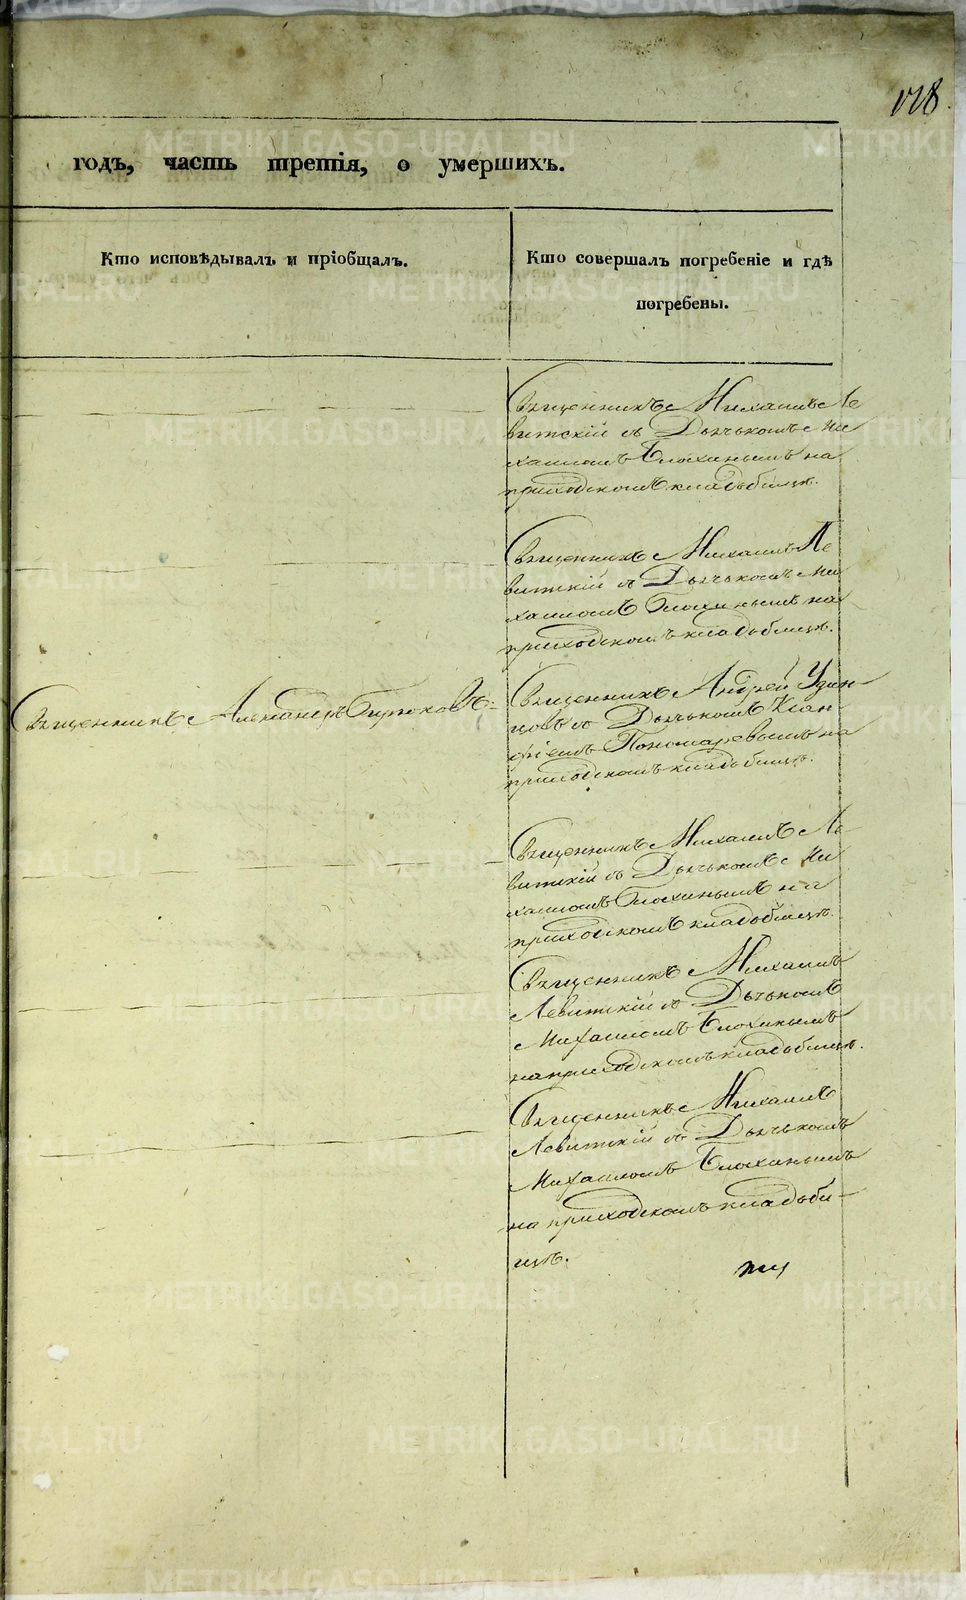 118
годъ, часть третія, о умершихъ.
Кто исповѣдывалъ и пріобщалъ.
Кто совершалъ погребеніе и гдѣ
погребены.
Священникъ Михаилъ Ле
витскій съ Дьячькомъ Ми
хаиломъ Блохинымъ на
приходскомъ кладбищѣ.
Священникъ Михаилъ Ле
витскій съ Дьячькомъ Ми
хаиломъ Блохинымъ на
приходскомъ кладбищѣ.
Священникъ Александръ Бирюковъ.
Священникъ Андрей Удин-
цовъ съ Дьячькомъ
Пономаревымъ на
приходскомъ кладбищѣ.
Священникъ Михаилъ Ле
витскій съ Дьячькомъ Ми
хаиломъ Блохинымъ на
приходскомъ кладбищѣ.
Священникъ Михаилъ
Левитскій съ Дьячькомъ
Михаиломъ Блохинымъ
на приходскомъ кладбищѣ.
Священникъ Михаилъ
Левитскій съ Дьячькомъ
Михаиломъ Блохинымъ
на приходскомъ кладби-
щѣ.
METRIKI.GASO-URAL.RU